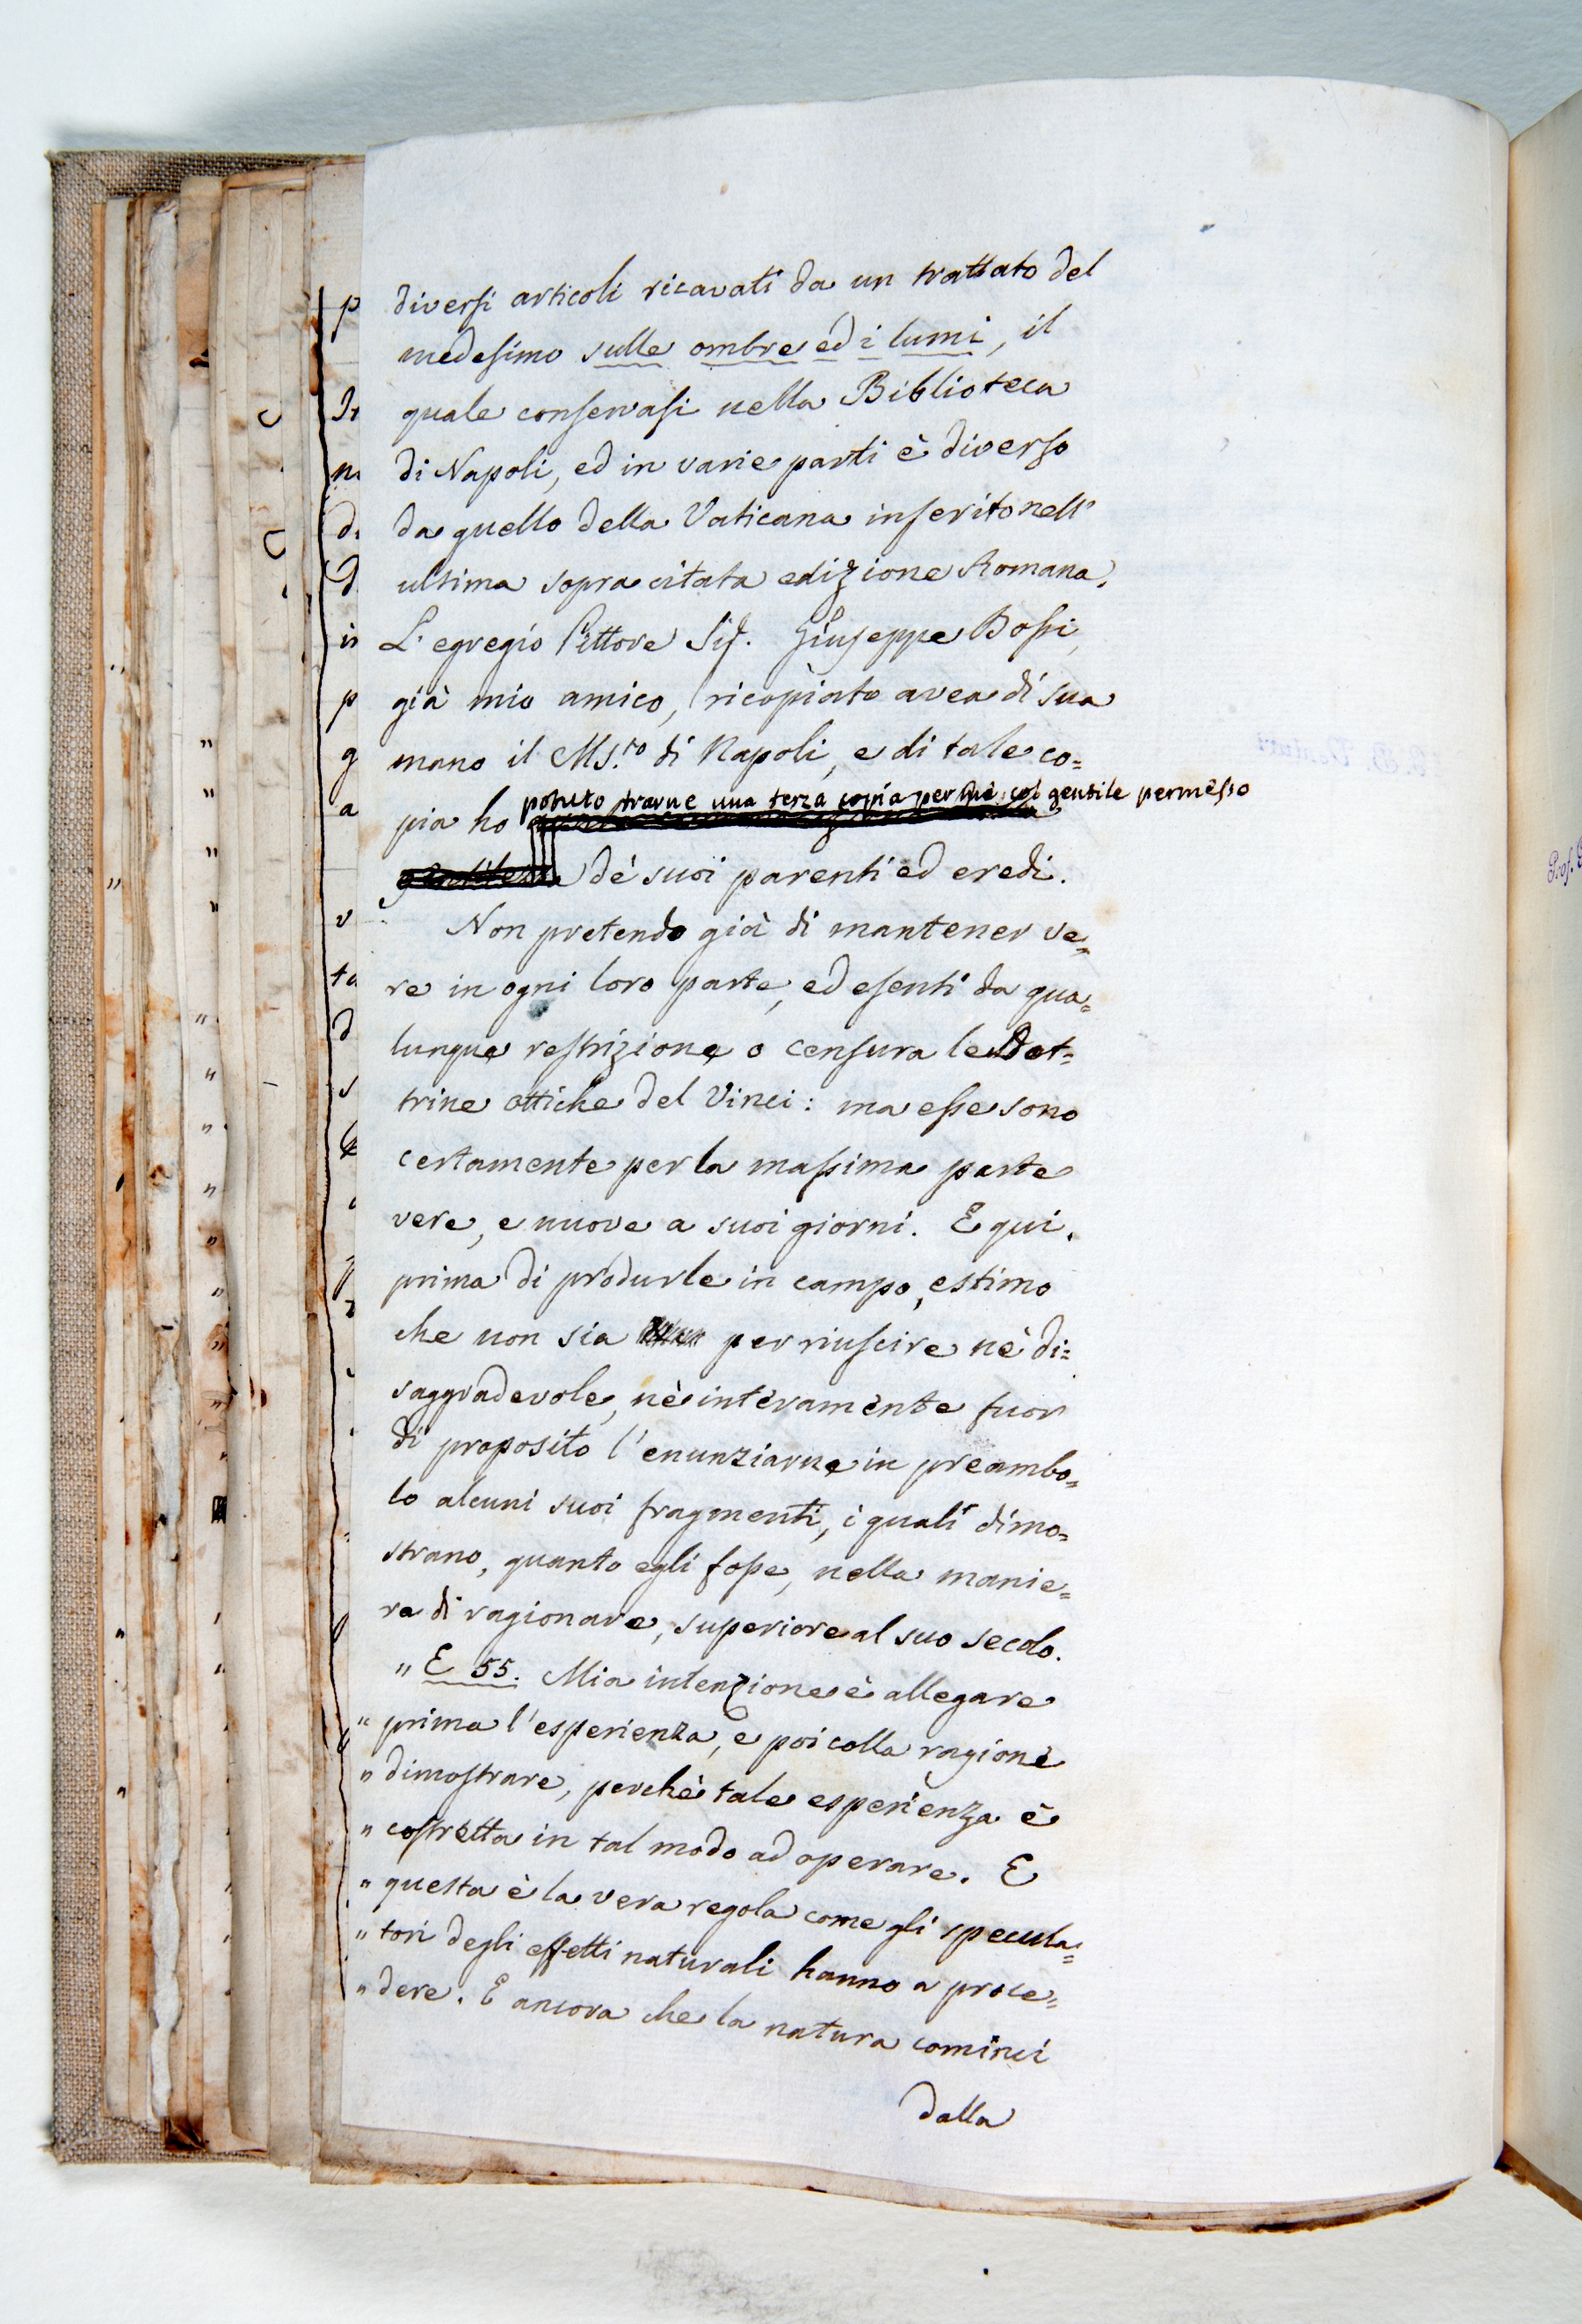 diversi articoli ricavati da un trattato del
medesimo sulle ombre ed i lumi, il
quale conservasi nella Biblioteca
di Napoli, ed in varie parti è diverso
da quello della Vaticana inserito nell'
ultima sopra citata edizione Romana.
L'egregio Pittore Sig. Giuseppe Bossi,
già mio amico, ricopiato avea di sua
mano il Ms.ro di Napoli, e di tale co=
potuto trarne una terza copia per me col gentile permesso
pia ho
de' suoi parenti ed eredi.
Non pretendo già di mantener ve=
re in ogni loro parte, ed esenti da qua=
lunque restrizione o censura le Dot=
trine ottiche del Vinci: ma esse sono
certamente per la massima parte
vere, e nuove a suoi giorni. E qui,
prima di produrle in campo, estimo
che non sia per riuscire nè di=
saggradevole, nè interamente fuor
di proposito l'enunziarne in preambo=
lo alcuni suoi fragmenti, i quali dimo=
strano, quanto egli fosse, nella manie=
ra di ragionare, superiore al suo secolo.
" E 55. Mia intenzione è allegare
" prima l'esperienza, e poi colla ragione
" dimostrare, perchè tale esperienza è
" costretta in tal modo ad operare. E
" questa è la vera regola come gli specula=
" tori degli effetti naturali hanno a proce=
" dere. E ancora che la natura cominci
dalla